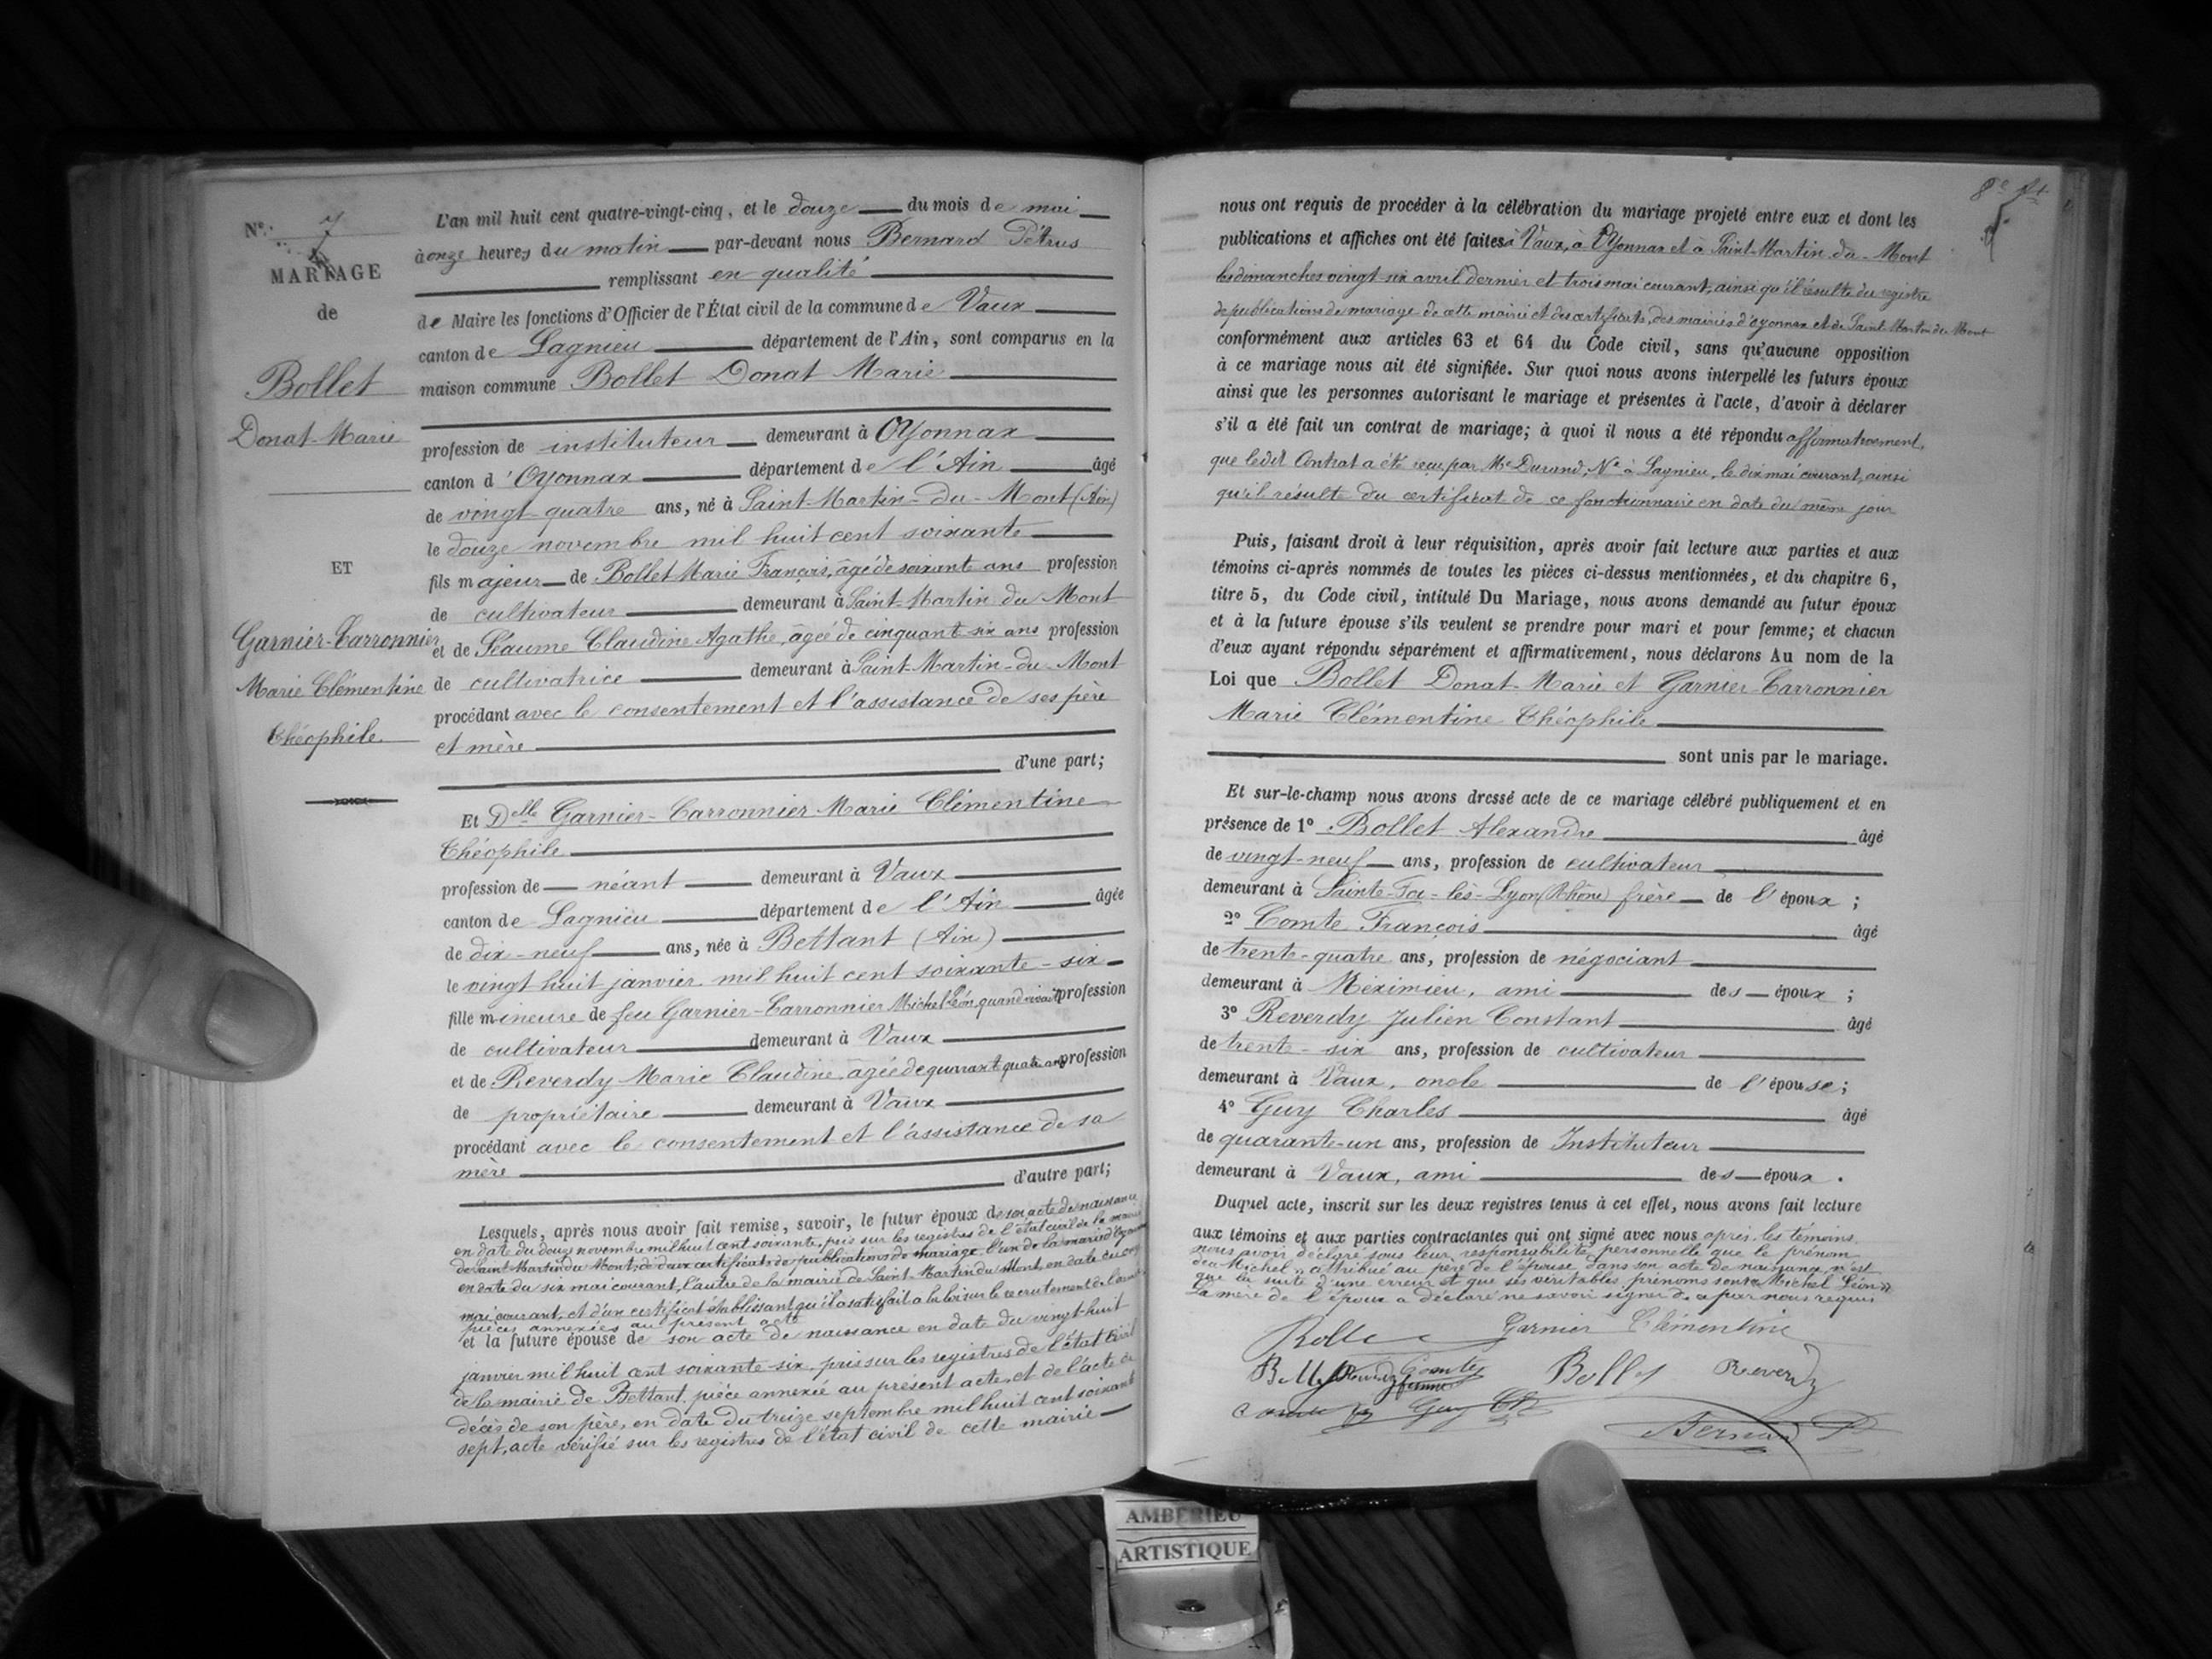 N°. 7
MARIAGE
de
Bollet
Donat-Marie
ET
Garnier-Carronnier
Marie Clémentine
Théophile
L'an mil huit cent quatre-vingt-cinq, et le douze du mois de mai
à onze heures du matin par-devant nous Bernard Pétrus
remplissant en qualité
de Maire les fonctions d'Officier de l'État civil de la commune de Vaux
canton de Lagnieu département de l'Ain, sont comparus en la
maison commune Bollet Donat Marie
profession de instituteur demeurant à Oyonnax
canton d'Oyonnax département de l'Ain âgé
de vingt-quatre ans, né à Saint-Martin-du-Mont (Ain)
le douze novembre mil huit cent soixante
fils majeur de Bollet Marie François, âgé de soixante ans profession
de cultivateur demeurant à Saint-Martin du Mont
et de Séaume Claudine Agathe, âgée de cinquant six ans profession
de cultivatrice demeurant à Saint-Martin-du-Mont
procédant avec le consentement et l'assistance de ses père
et mère
d'une part;
Et Delle Garnier-Carronnier Marie Clémentine
Théophile
profession de néant demeurant à Vaux
canton de Lagnieu département de l'Ain âgée
de dix-neuf ans, née à Bettant (Ain)
le vingt huit janvier mil huit cent soixante-six
fille mineure de feu Garnier-Carronnier Michel Léon quand vivait profession
de cultivateur demeurant à Vaux
et de Reverdy Marie Claudine, âgée de quarant quatre ans profession
de propriétaire demeurant à Vaux
procédant avec le consentement et l'assistance de sa
mère
d'autre part;
Lesquels, après nous avoir fait remise, savoir, le futur époux de son acte de naissance
en date du douze novembre mil huit cent soixante, pris sur les registres de l'état civil de la mairie
de Saint-Martin du Mont; de deux certificats de publications de mariage, l'un de la mairie d'Oyonnax
en date du six mai courant, l'autre de la mairie de Saint-Martin du Mont, en date du
mai courant, et d'un certificat établissant qu'il a satisfait à la loi sur le recrutement de l'armée
pièces annexées au présent acte
et la future épouse de son acte de naissance en date du vingt-huit
janvier mil huit cent soixante-six, pris sur les registres de l'état civil
de la mairie de Bettant, pièce annexée au présent acte, et de l'acte de
décès de son père, en date du treize septembre mil huit cent soixante
sept, acte vérifié sur les registres de l'état civil de cette mairie
8e
nous ont requis de procéder à la célébration du mariage projeté entre eux et dont les
publications et affiches ont été faites à Vaux, à Oyonnax et à Saint-Martin-du-Mont
les dimanches vingt-six avril dernier et trois mai courant, ainsi qu'il résulte du registre
de publications de mariage de cette mairie et des certificats des mairies d'Oyonnax et de Saint-Martin du Mont
conformément aux articles 63 et 64 du Code civil, sans qu'aucune opposition
à ce mariage nous ait été signifiée. Sur quoi nous avons interpellé les futurs époux
ainsi que les personnes autorisant le mariage et présentes à l'acte, d'avoir à déclarer
s'il a été fait un contrat de mariage; à quoi il nous a été répondu affirmativement,
que ledit Contrat a été reçu par Me Durand, Ne à Lagnieu, le dix mai courant, ainsi
qu'il résulte du certificat de ce fonctionnaire en date du même jour
Puis, faisant droit à leur réquisition, après avoir fait lecture aux parties et aux
témoins ci-après nommés de toutes les pièces ci-dessus mentionnées, et du chapitre 6,
titre 5, du Code civil, intitulé Du Mariage, nous avons demandé au futur époux
et à la future épouse s'ils veulent se prendre pour mari et pour femme; et chacun
d'eux ayant répondu séparément et affirmativement, nous déclarons Au nom de la
Loi que Bollet Donat-Marie et Garnier-Carronnier
Marie Clémentine Théophile
sont unis par le mariage.
Et sur-le-champ nous avons dressé acte de ce mariage célébré publiquement et en
présence de 1° Bollet Alexandre âgé
de vingt-neuf ans, profession de cultivateur
demeurant à Sainte-Foi-lès-Lyon (Rhône) frère de l'époux;
2° Comte François âgé
de trente-quatre ans, profession de négociant
demeurant à Méximieu, ami des époux;
3° Reverdy Julien Constant âgé
de trente-six ans, profession de cultivateur
demeurant à Vaux, oncle de l'épouse;
4° Guy Charles âgé
de quarante-un ans, profession de Instituteur
demeurant à Vaux, ami des époux.
Duquel acte, inscrit sur les deux registres tenus à cet effet, nous avons fait lecture
aux témoins et aux parties contractantes qui ont signé avec nous après les témoins
nous avoir déclaré sous leur responsabilité personnelle que le prénom
de « Michel » attribué au père de l'épouse dans son acte de naissance n'est
que la suite d'une erreur et que ses véritables prénoms sont « Michel Léon »
La mère de l'époux a déclaré ne savoir signer de ce par nous requis
Garnier Clémentine
Bollet Reverdy
Guy Ch
Bernard P
AMBÉRIEU
ARTISTIQUE